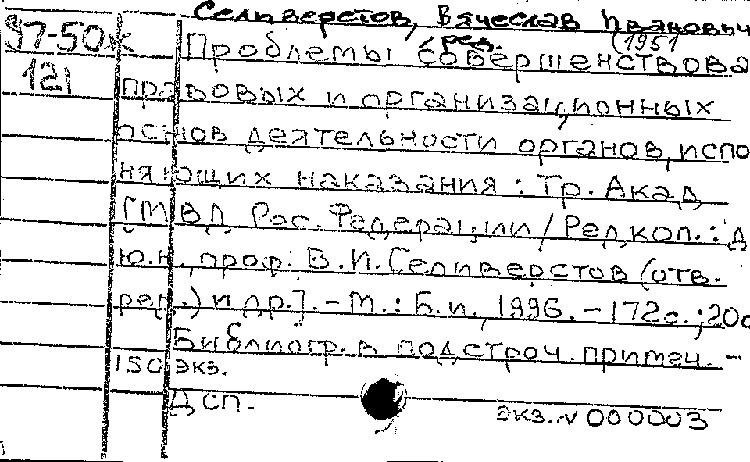 Селиверстов, Вячеслав Иванович
97-50ж ред. (1951
121 Проблемы совершенствова
правовых и организационных
основ деятельности органов, испо
няющих наказания : Тр. Акад
[МВД Рос. Федерации / Редкол. : д
ю.н., проф. В.И. Селиверстов (отв.
ред.) и др.]. - М. : Б.и., 1996. - 172с. ; 20с
Библиогр. в подстроч. примеч. -
150 экз.
ДСП.
экз. N 000003